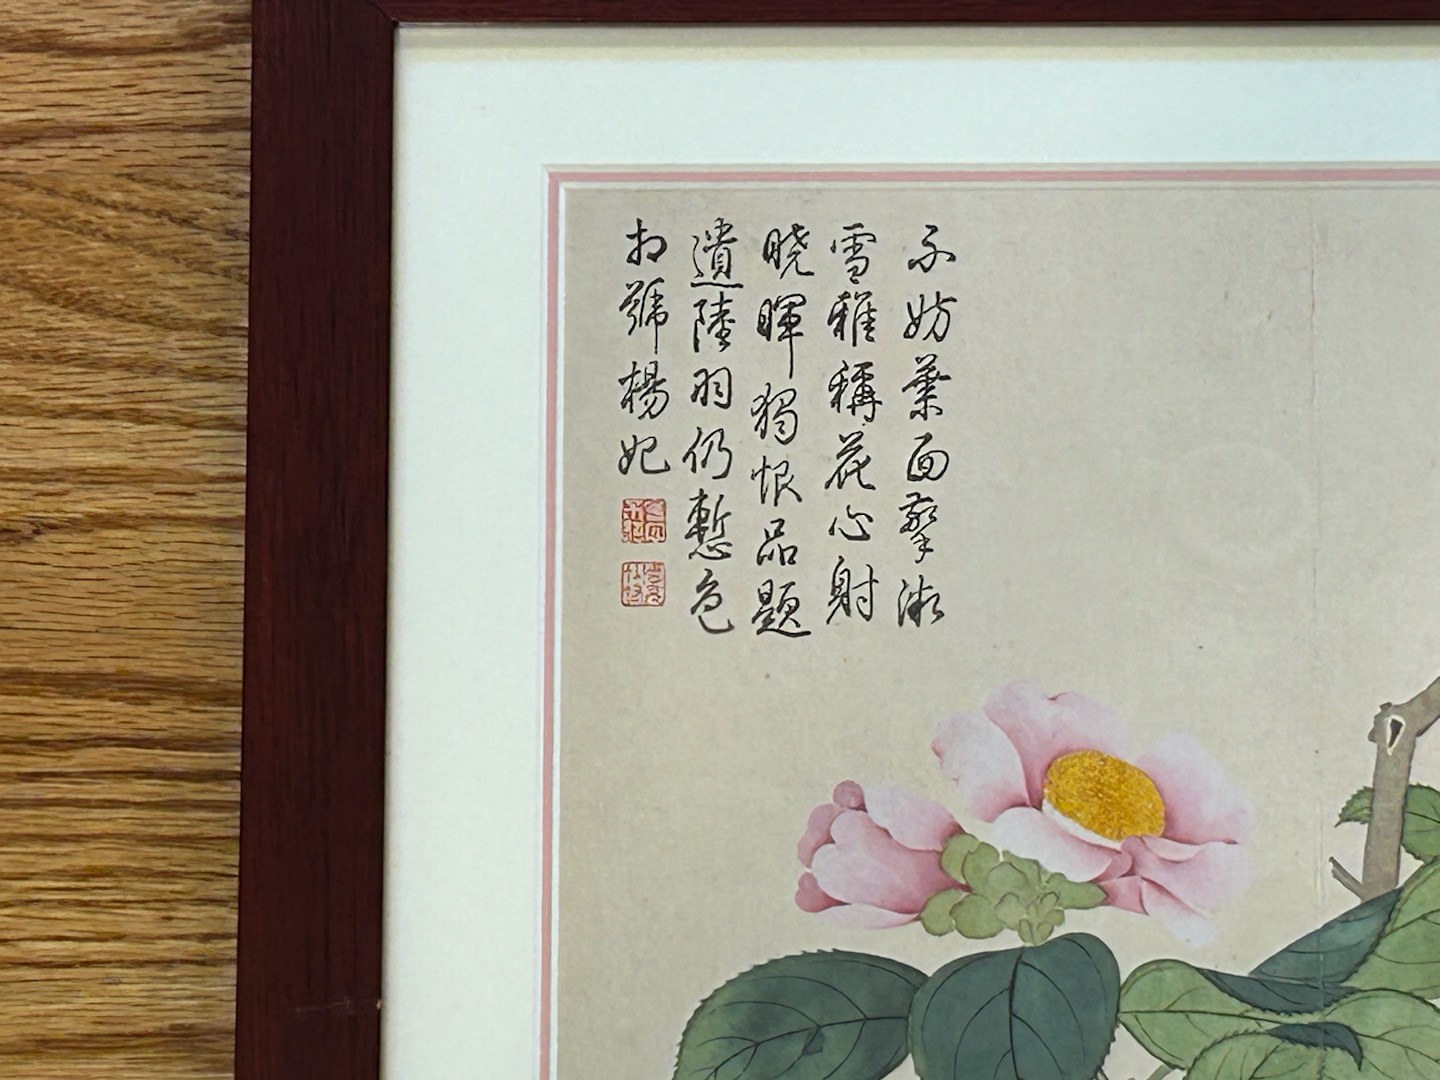 不妨葉面擎微
雪雅稱花心射
曉暉獨恨品題
遺陸羽仍慙色
相號楊妃